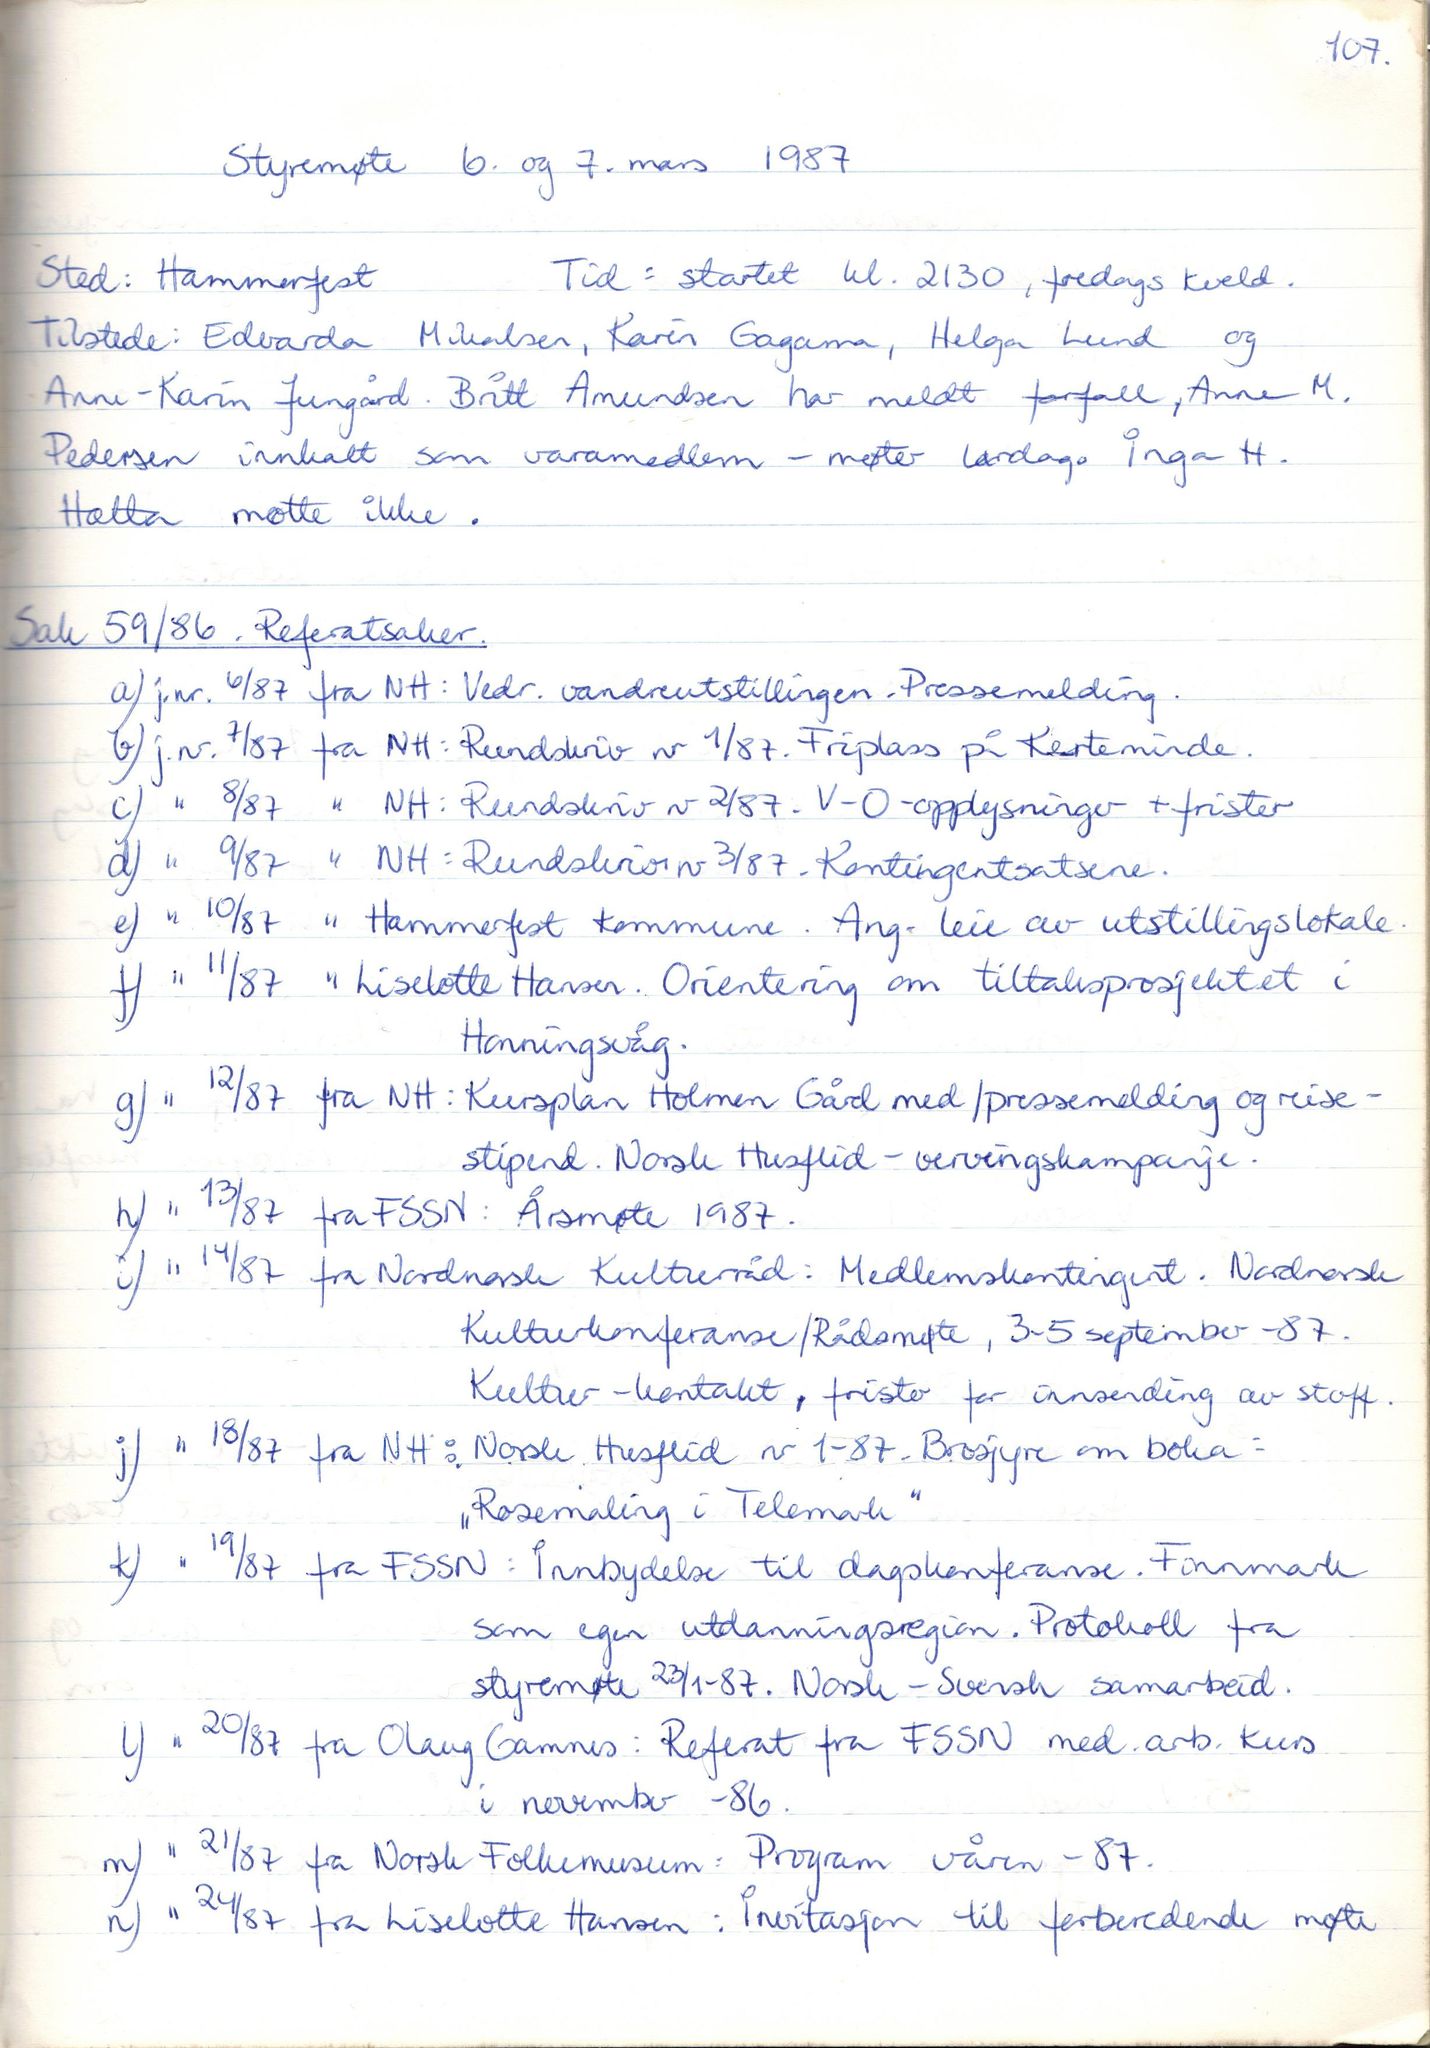 107.
Styremøte 6. og 7. mars 1987
Sted: Hammerfest Tid: startet kl. 2130, fredags kveld.
Tilstede: Edvarda Mikalsen, Karin Gagama, Helga Lund og
Anne-Karin Jungård. Britt Amundsen har meldt forfall, Anne M.
Pedersen innkalt som varamedlem - møter lørdag. Inga H.
Hætta møtte ikke.
Sak 59/86. Referatsaker.
a) j.nr. 6/87 fra NH: Vedr. vandreutstillingen. Pressemelding.
b) j.nr. 7/87 fra NH: Rundskriv nr 1/87. Friplass på Kerteminde.
c) " 8/87 " NH: Rundskriv nr 2/87. V-O-opplysninger + frister
d) " 9/87 " NH: Rundskriv nr 3/87. Kontingentsatsene.
e) " 10/87 " Hammerfest kommune. Ang. leie av utstillingslokale.
f) " 11/87 " Liselotte Hansen. Orientering om tiltaksprosjektet i
Honningsvåg.
g) " 12/87 fra NH: Kursplan Holmen Gård med/pressemelding og reise-
stipend. Norsk Husflid - vervingskampanje.
h) " 13/87 fra FSSN: Årsmøte 1987.
i) " 14/87 fra Nordnorsk Kulturråd: Medlemskontingent. Nordnorsk
Kulturkonferanse/Rådsmøte, 3-5 september -87.
Kultur-kontakt, frister for innsending av stoff.
j) " 18/87 fra NH: Norsk Husflid nr 1-87. Brosjyre om boka:
„Rosemaling i Telemark"
k) " 19/87 fra FSSN: Innbydelse til dagskonferanse. Finnmark
som egen utdanningsregion. Protokoll fra
styremøte 23/1-87. Norsk-Svensk samarbeid.
l) " 20/87 fra Olaug Gamnes: Referat fra FSSN med.arb. kurs
i november -86.
m) " 21/87 fra Norsk Folkemuseum: Program våren -87.
n) " 24/87 fra Liselotte Hansen: Invitasjon til forberedende møte